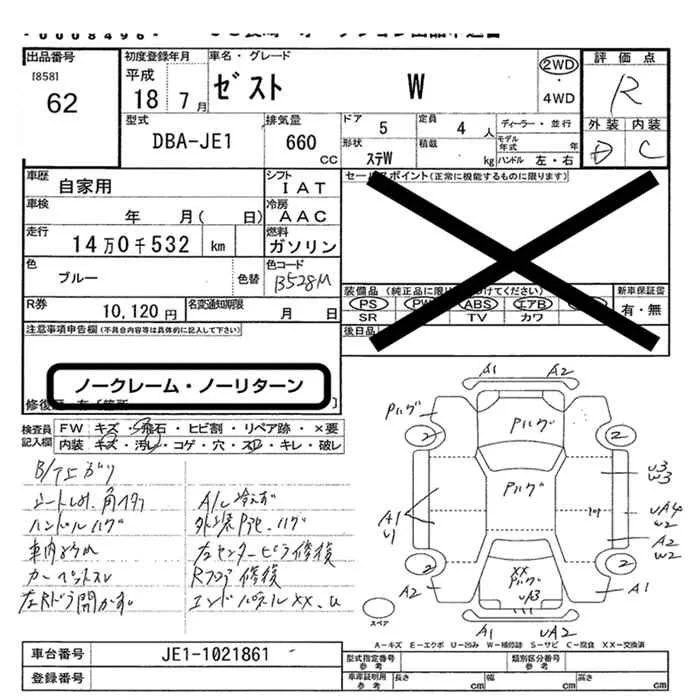 出品番号
[858]
62
初度登録年月
平成
18 7月
車名・グレード
ゼスト W
2WD
・
4WD
評価点
R
外装 内装
D C
型式
DBA-JE1
排気量
660
CC
ドア 5
定員 4 人
形状 ステW
積載 kg
ディーラー・並行
モデル年式 年
ハンドル 左・右
車歴
自家用
シフト
IAT
車検
年 月( 日)
冷房
AAC
走行
14万0千532 km
燃料
ガソリン
色
ブルー
色替
色コード
B528M
R券
10,120円
名変通知期限
月 日
セールスポイント(正常に機能するものに限ります)
装備品
PS PW ABS エアB
SR TV カワ
新車保証書
有・無
後日品
注意事項申告欄(不具合内容等は具体的に記入して下さい)
ノークレーム・ノーリターン
検査員
記入欄
FW キズ・飛石・ヒビ割・リペア跡・×要
内装 キズ・汚レ・コゲ・穴・スレ・キレ・破レ
B/T上がり
ハンドルハゲ
カーペットスレ
左Rドラ開かず
A/C冷えず
左センターピラ修復
Rフロア修復
エンドパネルXX、U
A1 A2
Pハゲ
Pハゲ
2 2
Pハゲ
U3
W3
A1
U1
UA4
U2
A2
W2
2 2
XX
Pハゲ
UA3
A2 A1
スペア
A1 UA2
A-キズ E-エクボ U-凹み W-補修跡 S-サビ C-腐食 XX-交換済
車台番号
JE1-1021861
登録番号
型式指定番号
参考
類別区分番号
参考
車庫証明用
参考
長さ cm 幅 cm 高さ cm